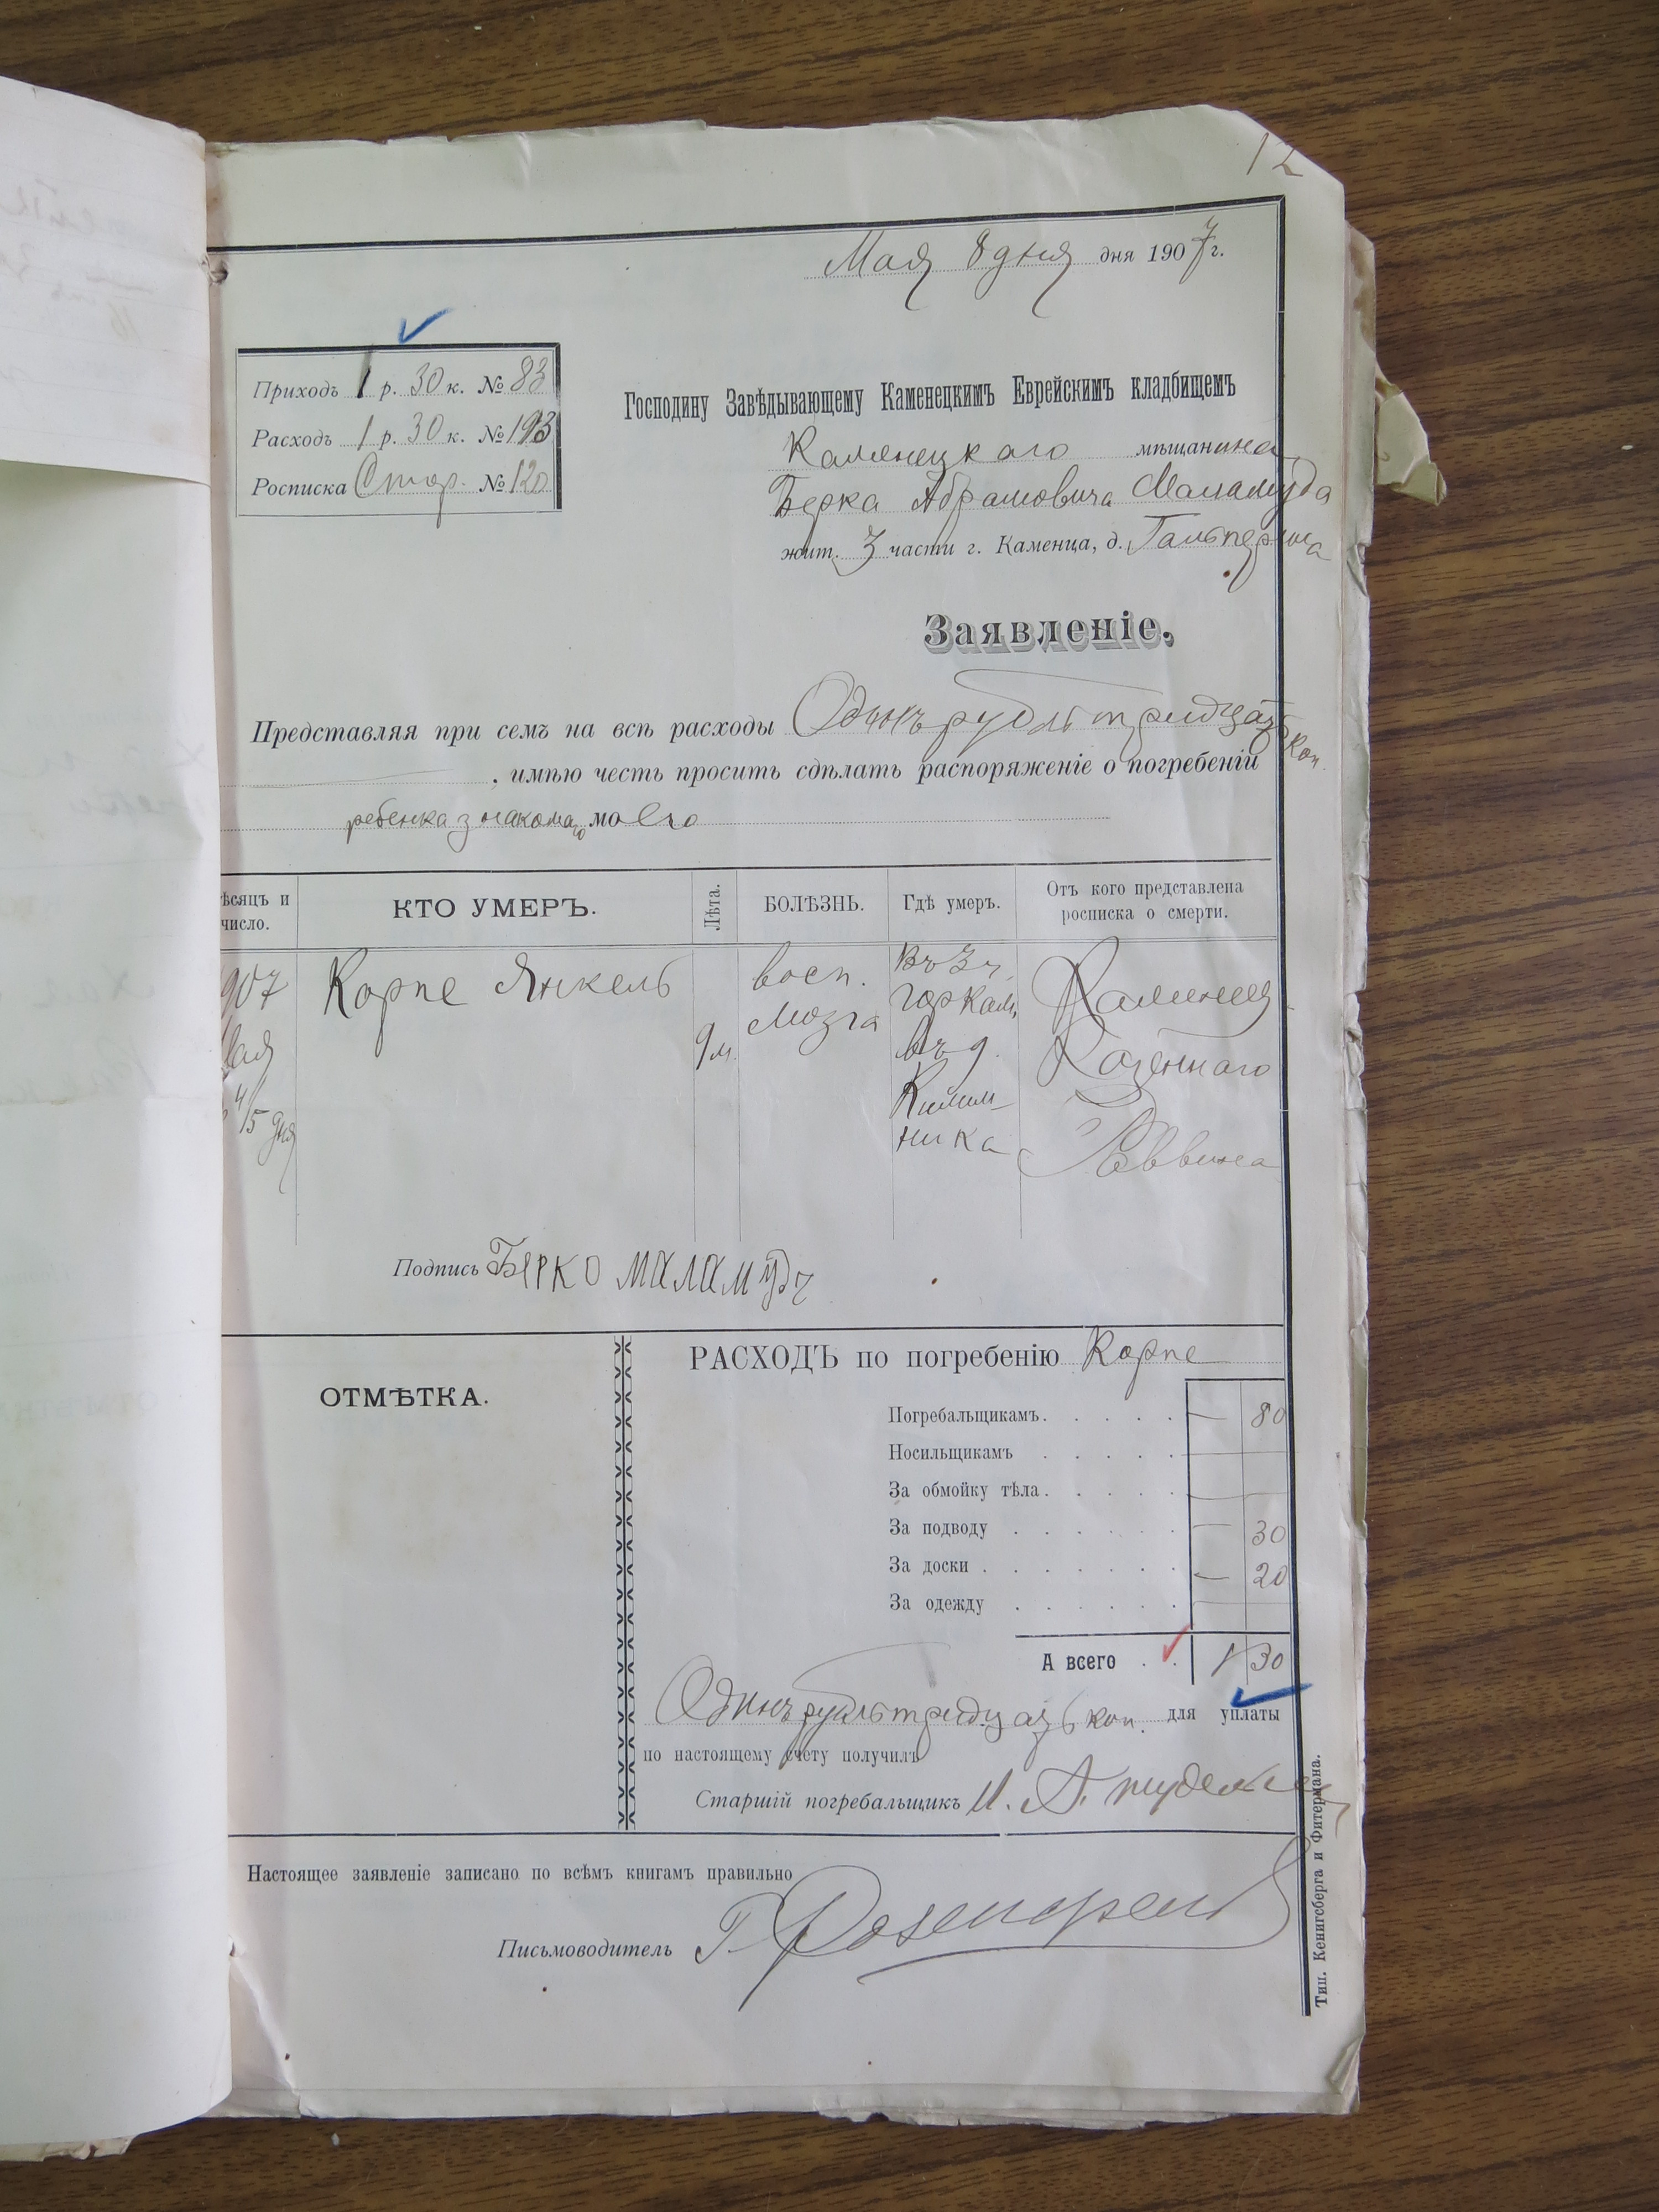 12
Мая 8 дня дня 1907 г.
Приходъ 1 р. 30 к. № 83
Расходъ 1 р. 30 к. № 193
Росписка Стор. № 120
Господину Завѣдывающему Каменецкимъ Еврейскимъ кладбищемъ
Каменецкаго мѣщанина
Берка Абрамовича Маламуда
жит. 3 части г. Каменца, д. Гальперина
Заявленіе.
Представляя при семъ на всѣ расходы Одинъ рубль тридцать коп.
, имѣю честь просить сдѣлать распоряженіе о погребеніи
ребенка знакомаго моего
ѣсяцъ и число. КТО УМЕРЪ. Лѣта. БОЛѢЗНЬ. Гдѣ умеръ. Отъ кого представлена росписка о смерти.
907 Корпе Янкель 9 м. восп. въ 3 ч. Каменец.
мая мозга гор. Кам. Казеннаго
4/5 дня въ д. Раввина
Килим-
ника
Подпись Берко Маламудъ
ОТМѢТКА.
РАСХОДЪ по погребенію Корпе
Погребальщикамъ. — 80
Носильщикамъ
За обмойку тѣла.
За подводу — 30
За доски — 20
За одежду
А всего 1 30
Одинъ рубль тридцать коп. для уплаты
по настоящему счету получилъ
Старшій погребальщикъ И.
Настоящее заявленіе записано по всѣмъ книгамъ правильно
Письмоводитель Г.
Тип. Кенигсберга и Фитермана.